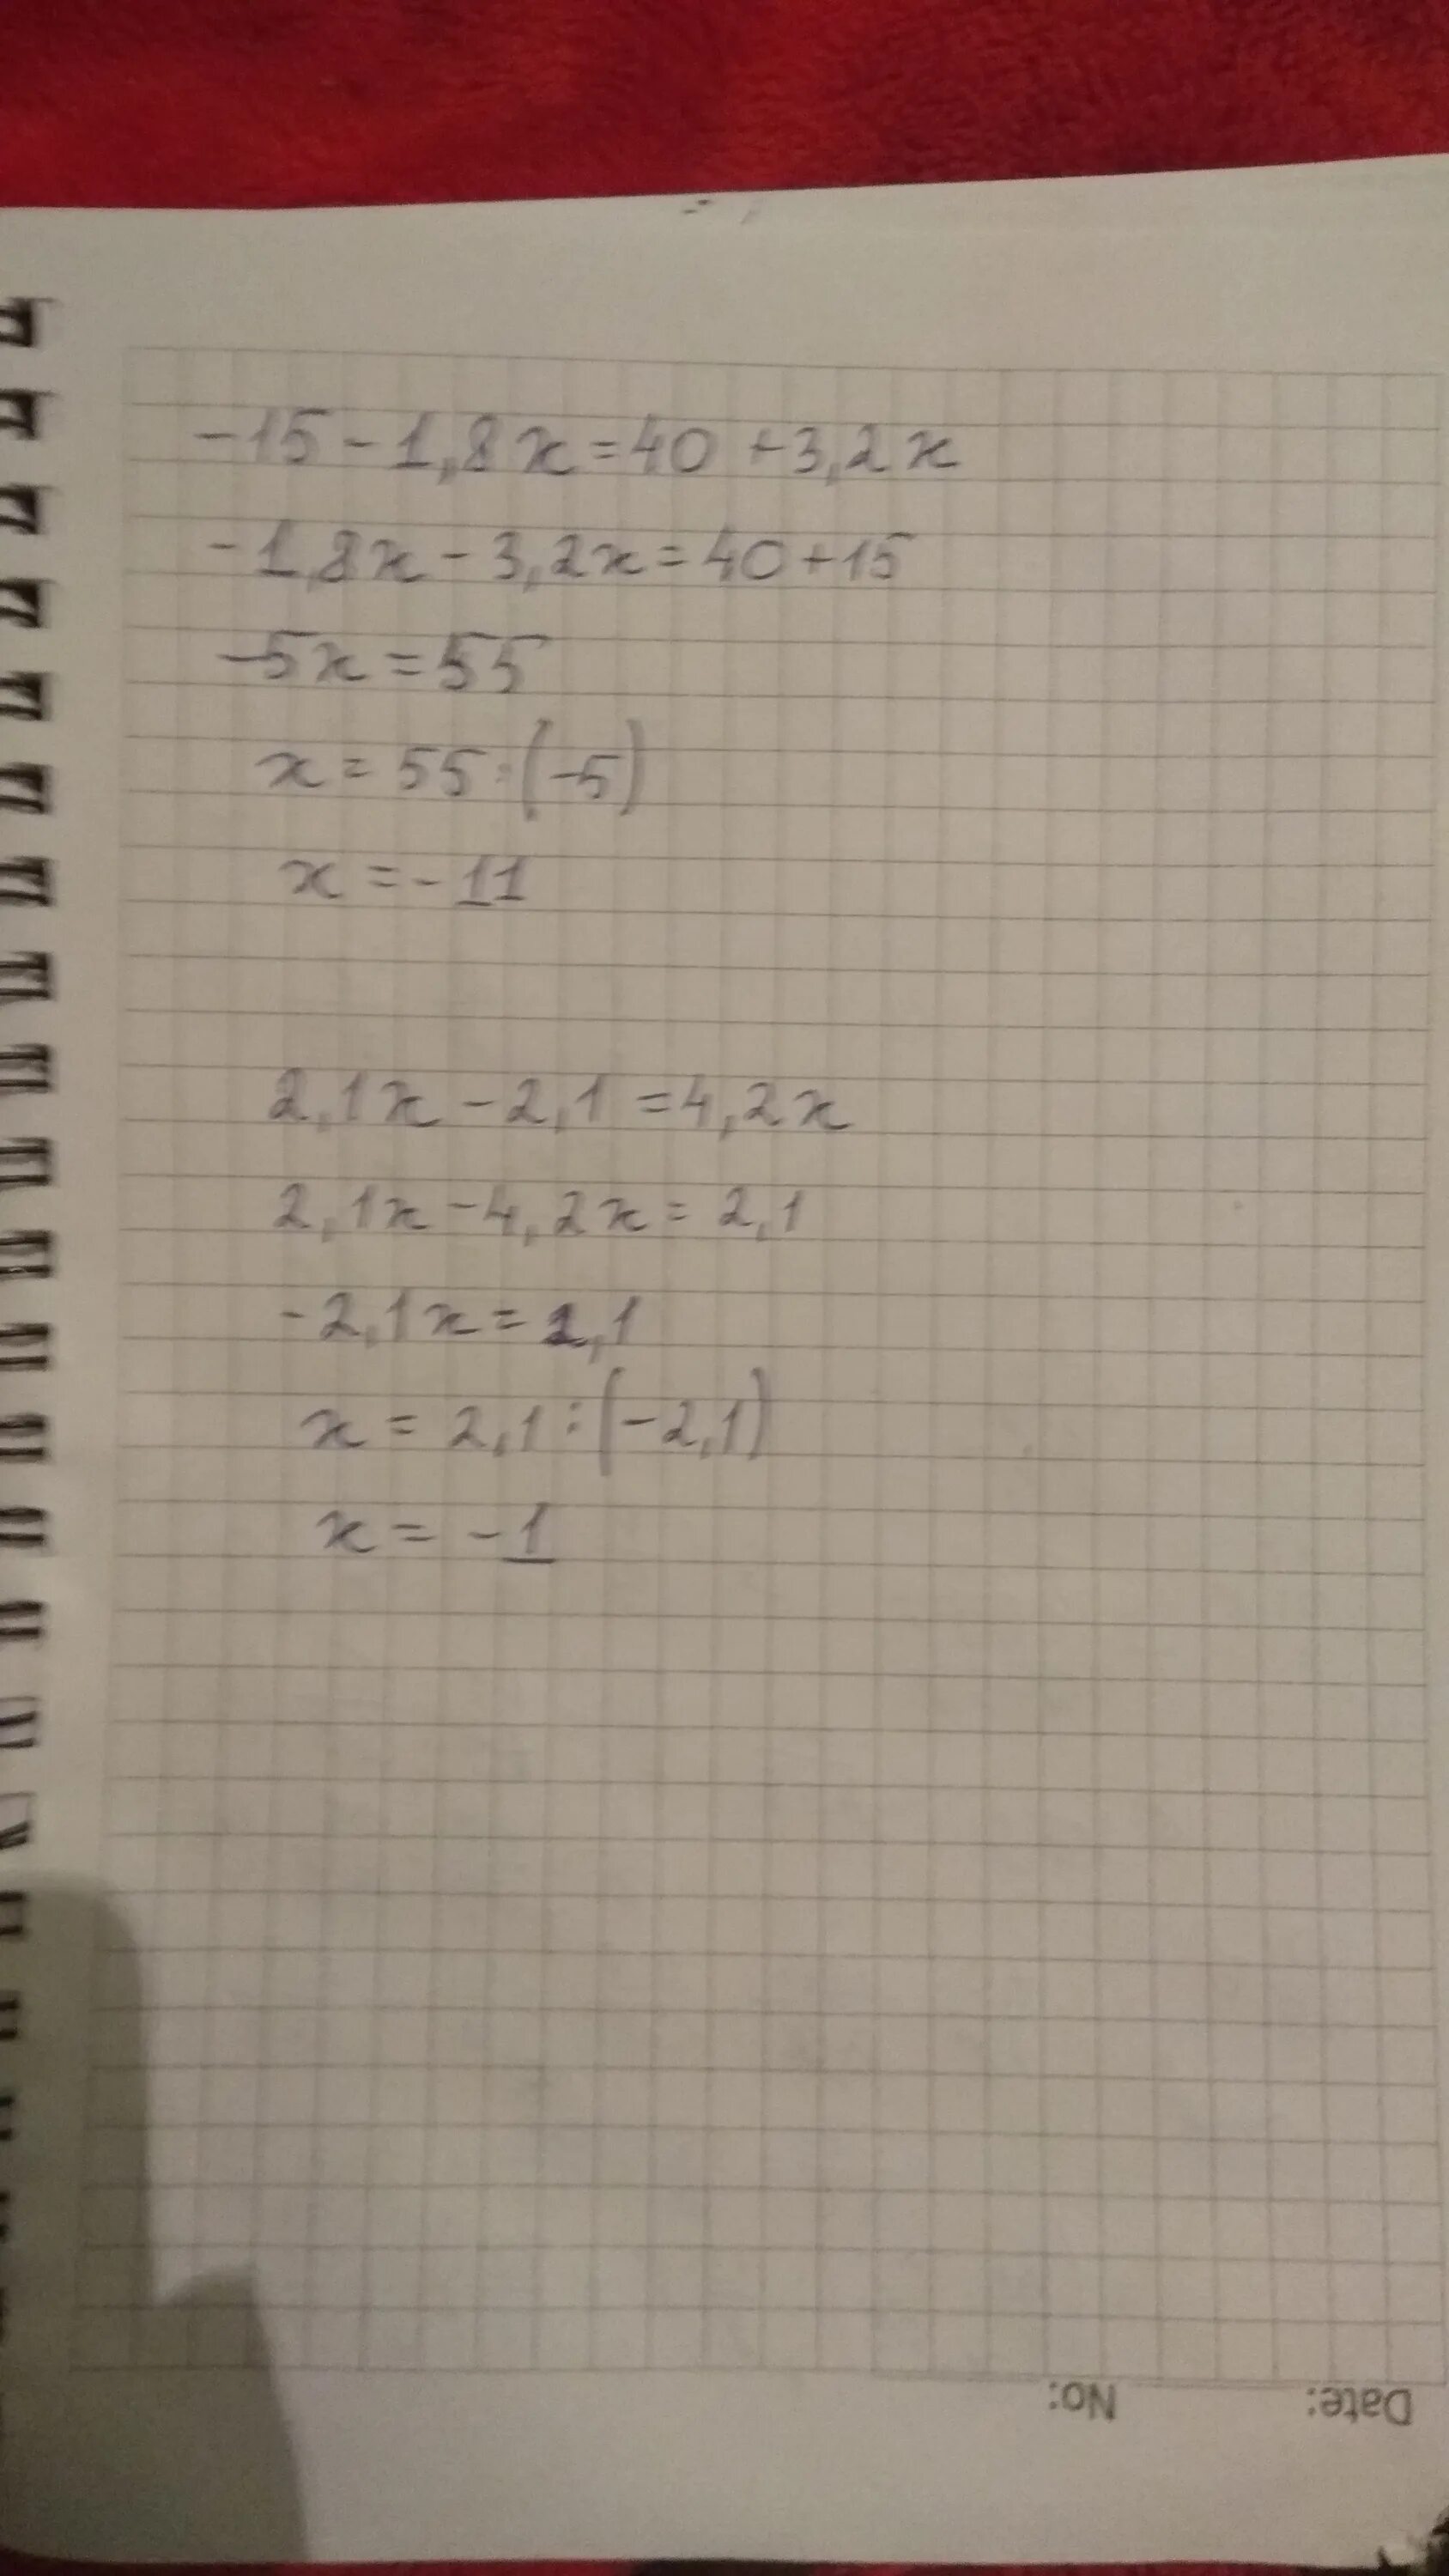 -15-1,8x=40+3,2x
-1,8x-3,2x=40+15
-5x=55
x=55:(-5)
x=-11
2,1x-2,1=4,2x
2,1x-4,2x=2,1
-2,1x=2,1
x=2,1:(-2,1)
x=-1
Date: No: